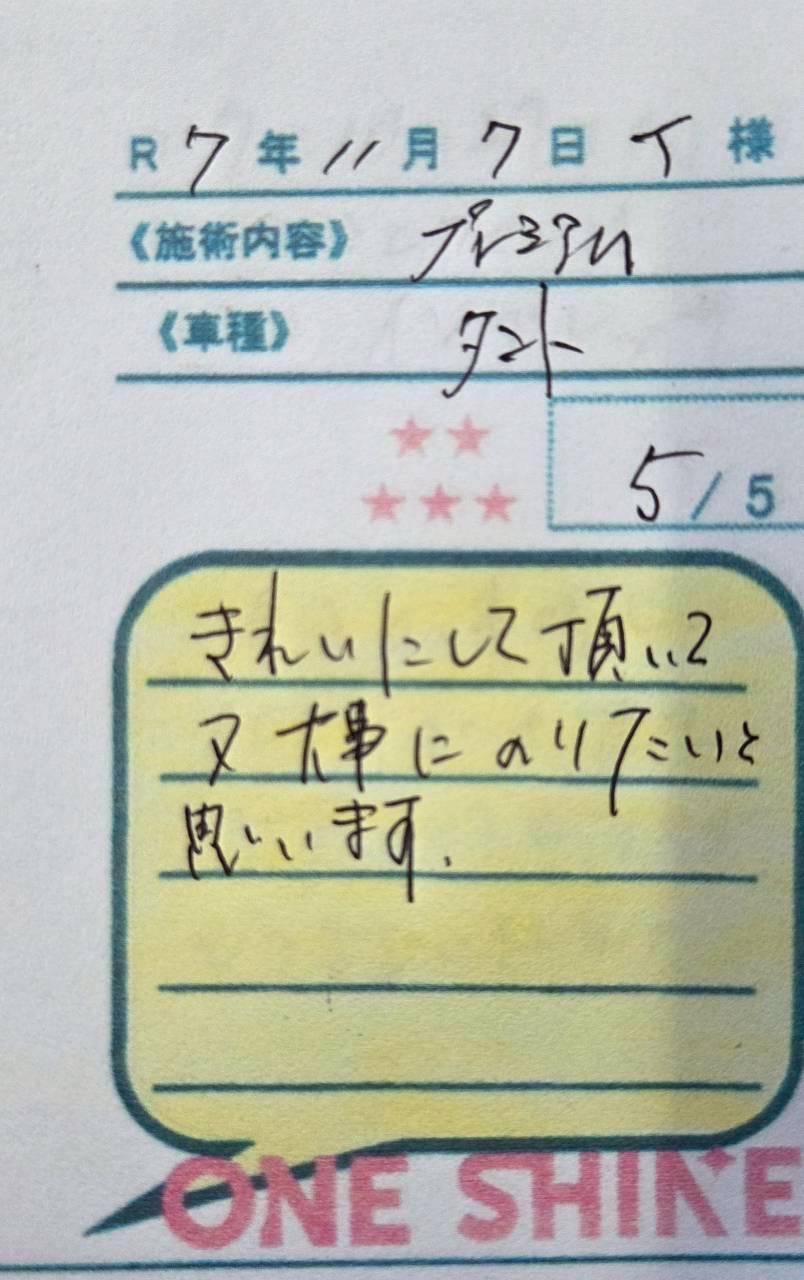 R 7年 11月 7日 T 様
《施術内容》 プレミアム
《車種》 タント
5/5
きれいにして頂いて
又大事にのりたいと
思います.
ONE SHINE